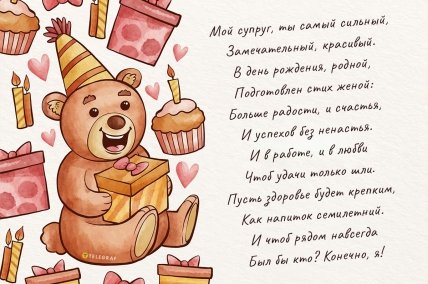 Мой супруг, ты самый сильный,
Замечательный, красивый.
В день рождения, родной,
Подготовлен стих женой:
Больше радости, и счастья,
И успехов без ненастья.
И в работе, и в любви
Чтоб удачи только шли.
Пусть здоровье будет крепким,
Как напиток семилетний.
И чтоб рядом навсегда
Был бы кто? Конечно, я!
TELEGRAF